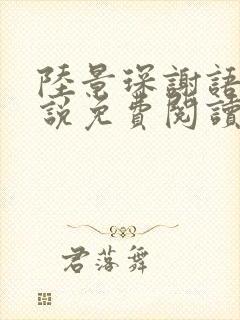 陸景琛謝語
說免費閱讀
君落舞